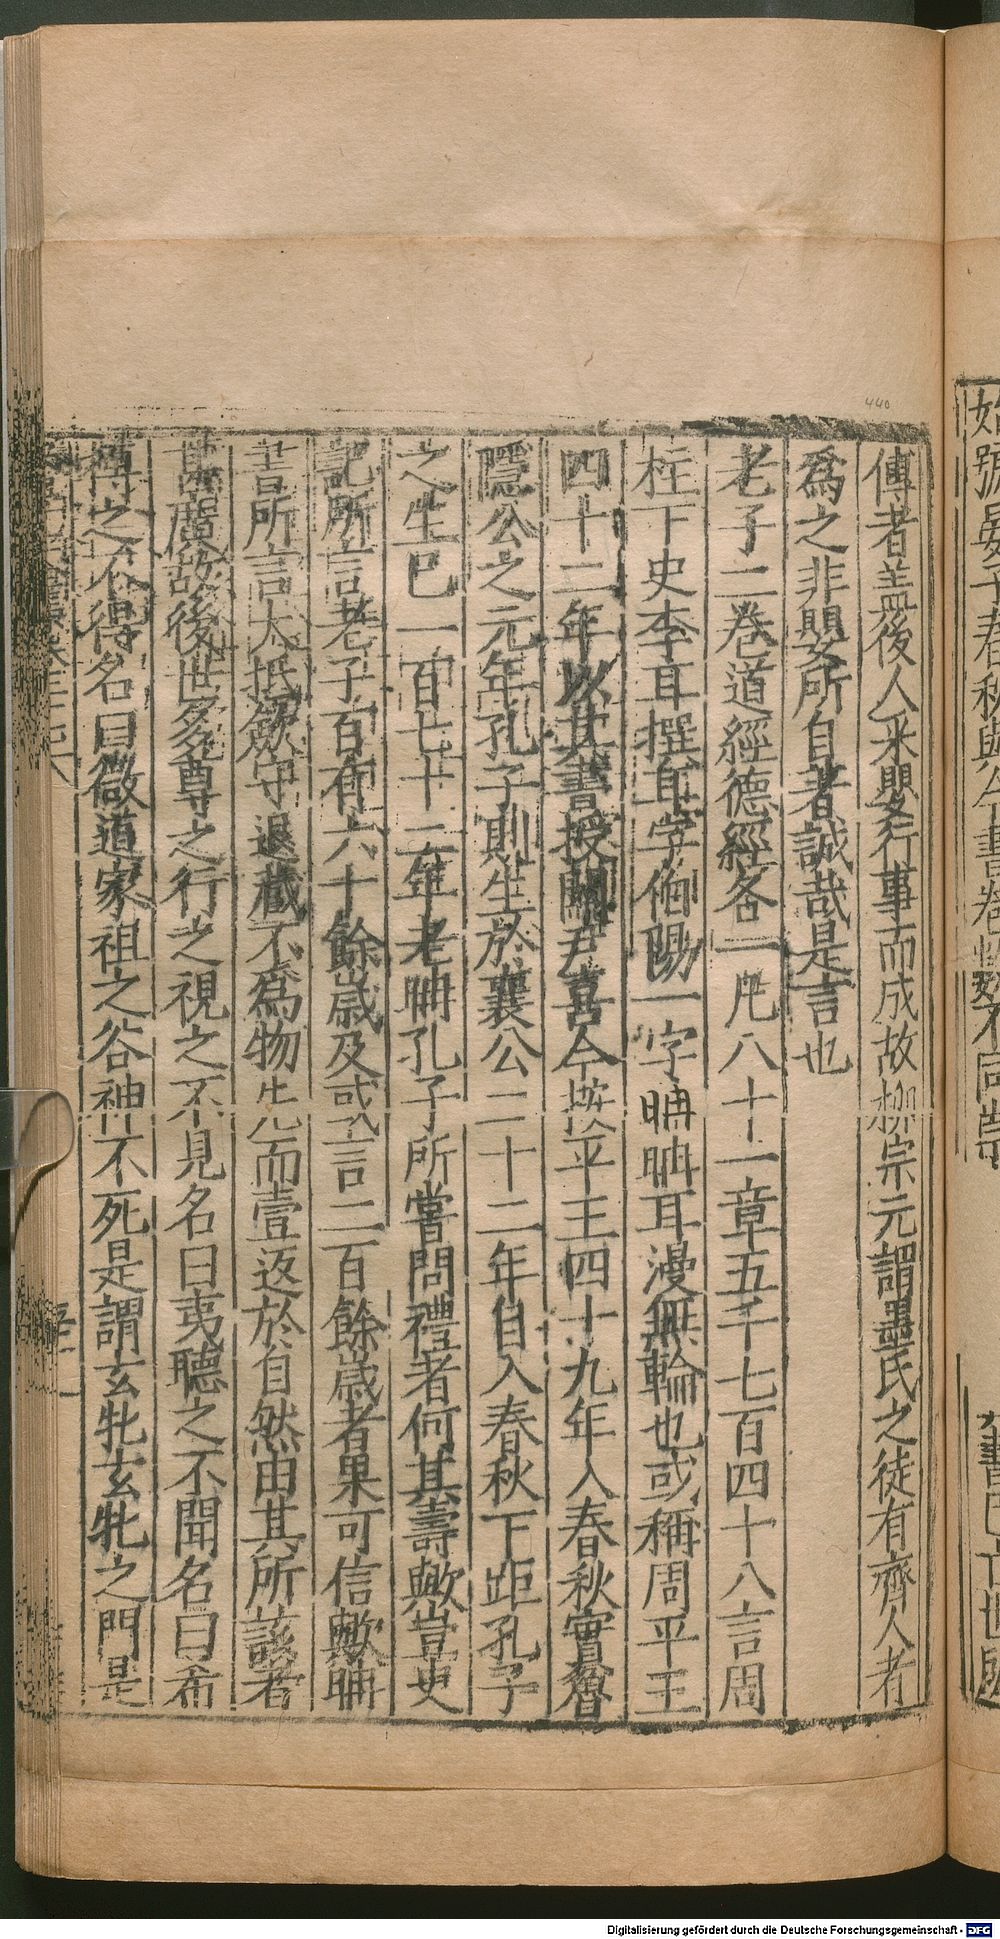 傳者蓋後人采嬰行事而成故柳宗元謂墨氏之徒有齊人者
爲之非嬰所自著誠哉是言也
老子二卷道經德經各一凢八十一章五千七百四十八言周
柱下史李耳撰耳字伯陽一字聃聃耳漫無輪也或稱周平王
四十二年以其書授關尹喜今按平王四十九年入春秋實魯
隱公之元年孔子則生於襄公二十二年自入春秋下距孔子
之生巳一百七十二年老聃孔子所嘗問禮者何其壽歟豈史
記所言老子百有六十餘歲及或言二百餘歲者果可信歟聃
書所言大抵歛守退藏不爲物先而壹返於自然由其所該者
甚廣故後世多尊之行之視之不見名曰夷聽之不聞名曰希
搏之不得名曰微道家祖之谷神不死是謂玄牝玄牝之門是
440
Digitalisierung gefördert durch die Deutsche Forschungsgemeinschaft - DFG